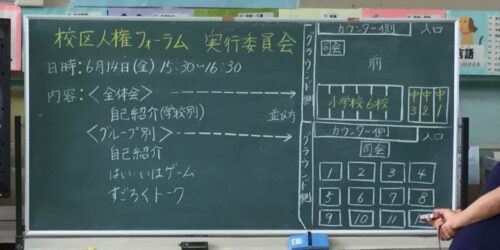 校区人権フォーラム 実行委員会
日時：6月14日(金) 15:30〜16:30
内容：〈全体会〉
自己紹介(学校別)
並び方
〈グループ別〉
自己紹介
はい・いはゲーム
すごろくトーク
カウンター側
入口
司会
グラウンド側
前
小学校6校
中3
中2
中1
カウンター側
入口
司会
グラウンド側
1 2 3 4
5 6 7 8
9 10 11
言語